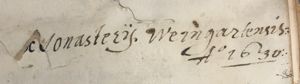 Monasterij Weingartensis.
Aº 1630.